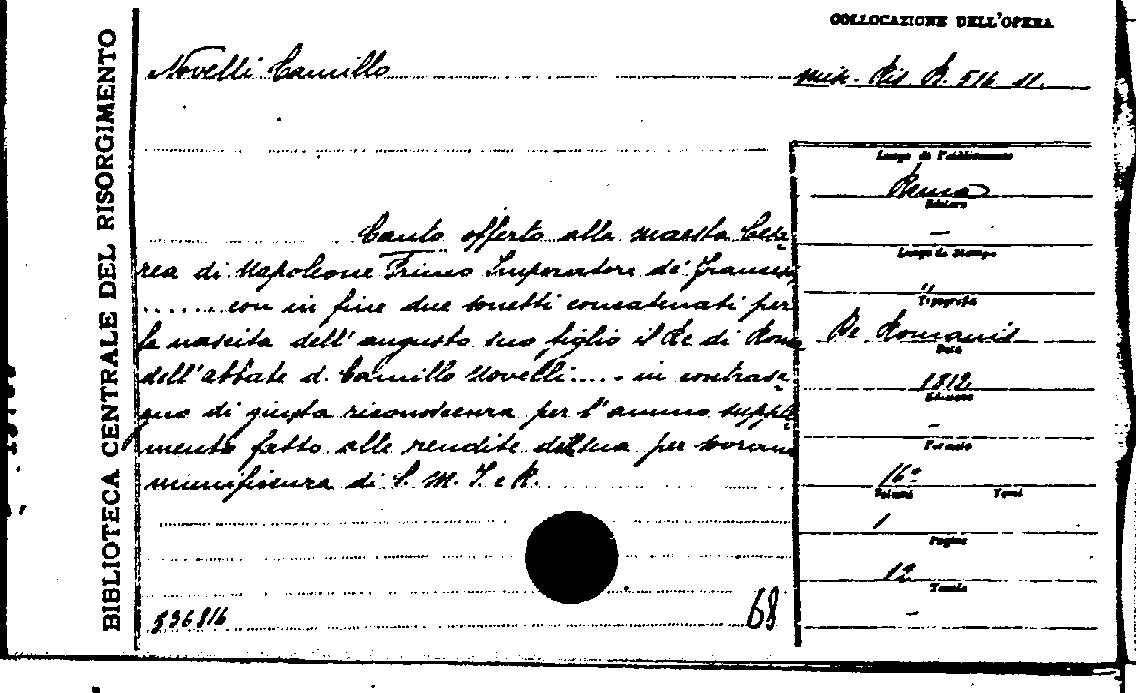 BIBLIOTECA CENTRALE DEL RISORGIMENTO
COLLOCAZIONE DELL'OPERA
Novelli Camillo
Ris B. 516 11.
Canto offerto alla maestà Cesa-
rea di Napoleone Primo Imperatore de' Francesi
...... con in fine due sonetti concatenati per
la nascita dell'augusto suo figlio il Re di Roma
dell'abbate d. Camillo Novelli..... in contrase-
gno di giusta riconoscenza per l'annuo supple-
mento fatto alle rendite per sovrana
munificenza di S. M. I. e R.
536816
68
Luogo di Pubblicazione
Roma
Editore
–
Luogo di Stampa
"
Tipografia
De Romanis
Data
1812
Edizione
–
Formato
16°
Volumi Tomi
1
Pagine
12
Tavole
–